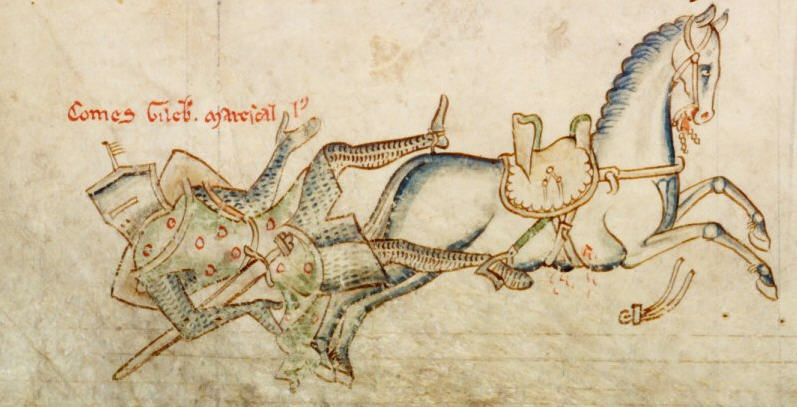 Comes Gileb. marescal